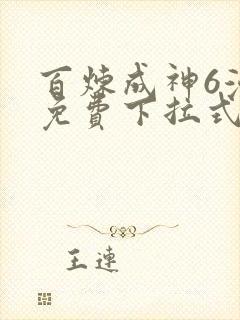 百炼成神6漫
免费下拉式
王连